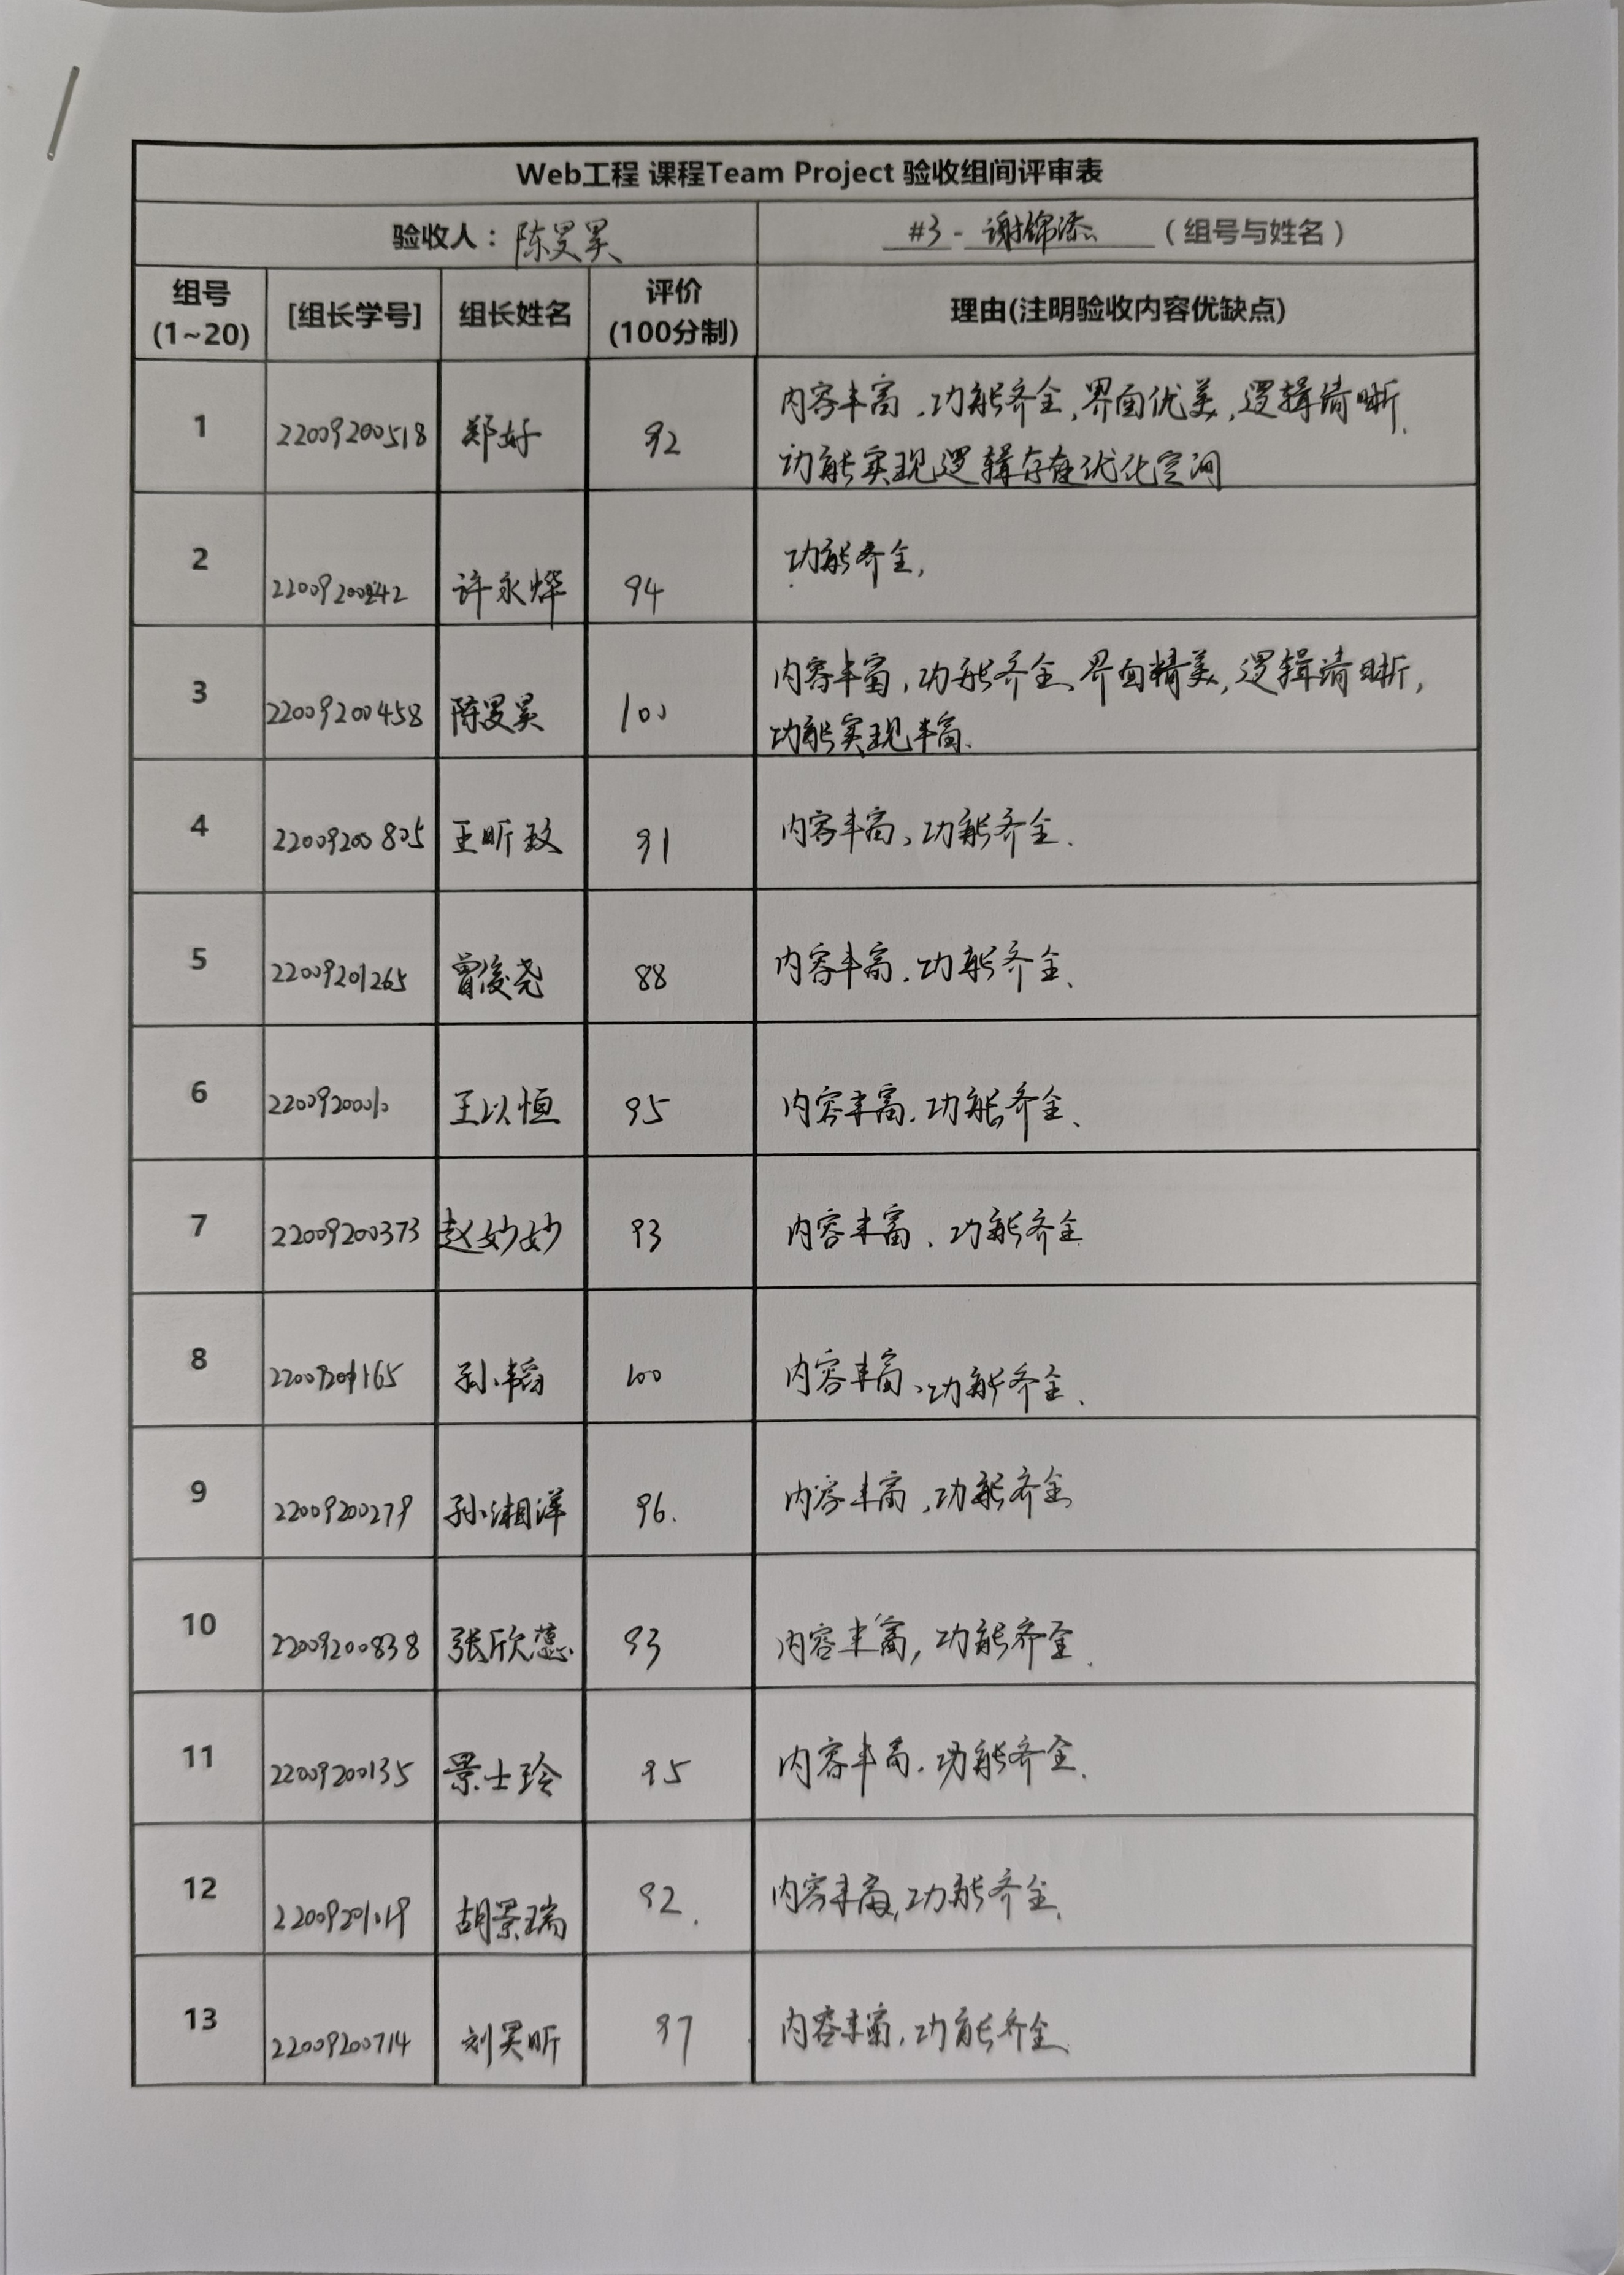 Web工程 课程Team Project 验收组间评审表
验收人： 陈旻昊 #3 - 谢锦添 （组号与姓名）
组号 (1~20) [组长学号] 组长姓名 评价 (100分制) 理由(注明验收内容优缺点)
1 22009200518 郑好 92 内容丰富，功能齐全，界面优美，逻辑清晰、
功能实现逻辑存在优化空间
2 许永烨 94 功能齐全，
3 22009200458 陈旻昊 100 内容丰富，功能齐全、界面精美，逻辑清晰，
功能实现丰富、
4 22009200805 王昕玟 91 内容丰富、功能齐全、
5 22009201265 曾俊尧 88 内容丰富，功能齐全、
6 王以恒 95 内容丰富，功能齐全、
7 22009200373 赵妙妙 93 内容丰富、功能齐全
8 22009201165 孙韬 100 内容丰富、功能齐全、
9 22009200279 孙湘洋 96. 内容丰富，功能齐全
10 22009200838 张欣蕊 93 内容丰富，功能齐全、
11 22009200135 景士玲 95 内容丰富，功能齐全、
12 22009201019 胡景瑞 92. 内容丰富，功能齐全、
13 22009200714 刘昊昕 97 内容丰富，功能齐全、